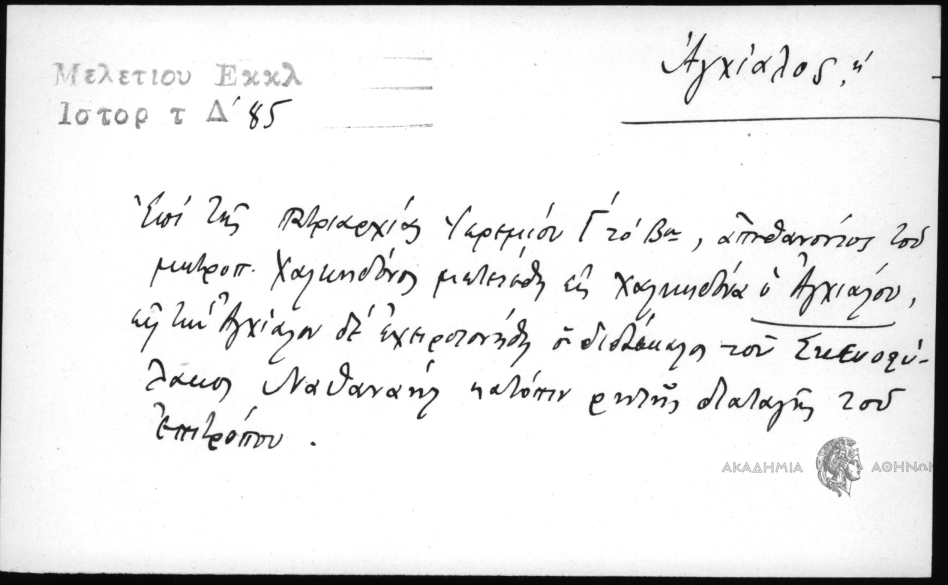 Μελετιου Εκκλ
Ιστορ τ Δ' 85
Ἀγχίαλος, ἡ
Ἐπὶ τῆς πατριαρχίας Ἱερεμίου Γ' τὸ Βον, ἀποθανόντος τοῦ
μητροπ. Χαλκηδόνος μετετέθη εἰς Χαλκηδόνα ὁ Ἀγχιάλου,
εἰς τὴν Ἀγχίαλον δὲ ἐχειροτονήθη ὁ διδάσκαλος τοῦ Σκευοφύ-
λακος Ναθαναὴλ κατόπιν ρητῆς διαταγῆς τοῦ
Ἐπιτρόπου.
ΑΚΑΔΗΜΙΑ ΑΘΗΝΩΝ